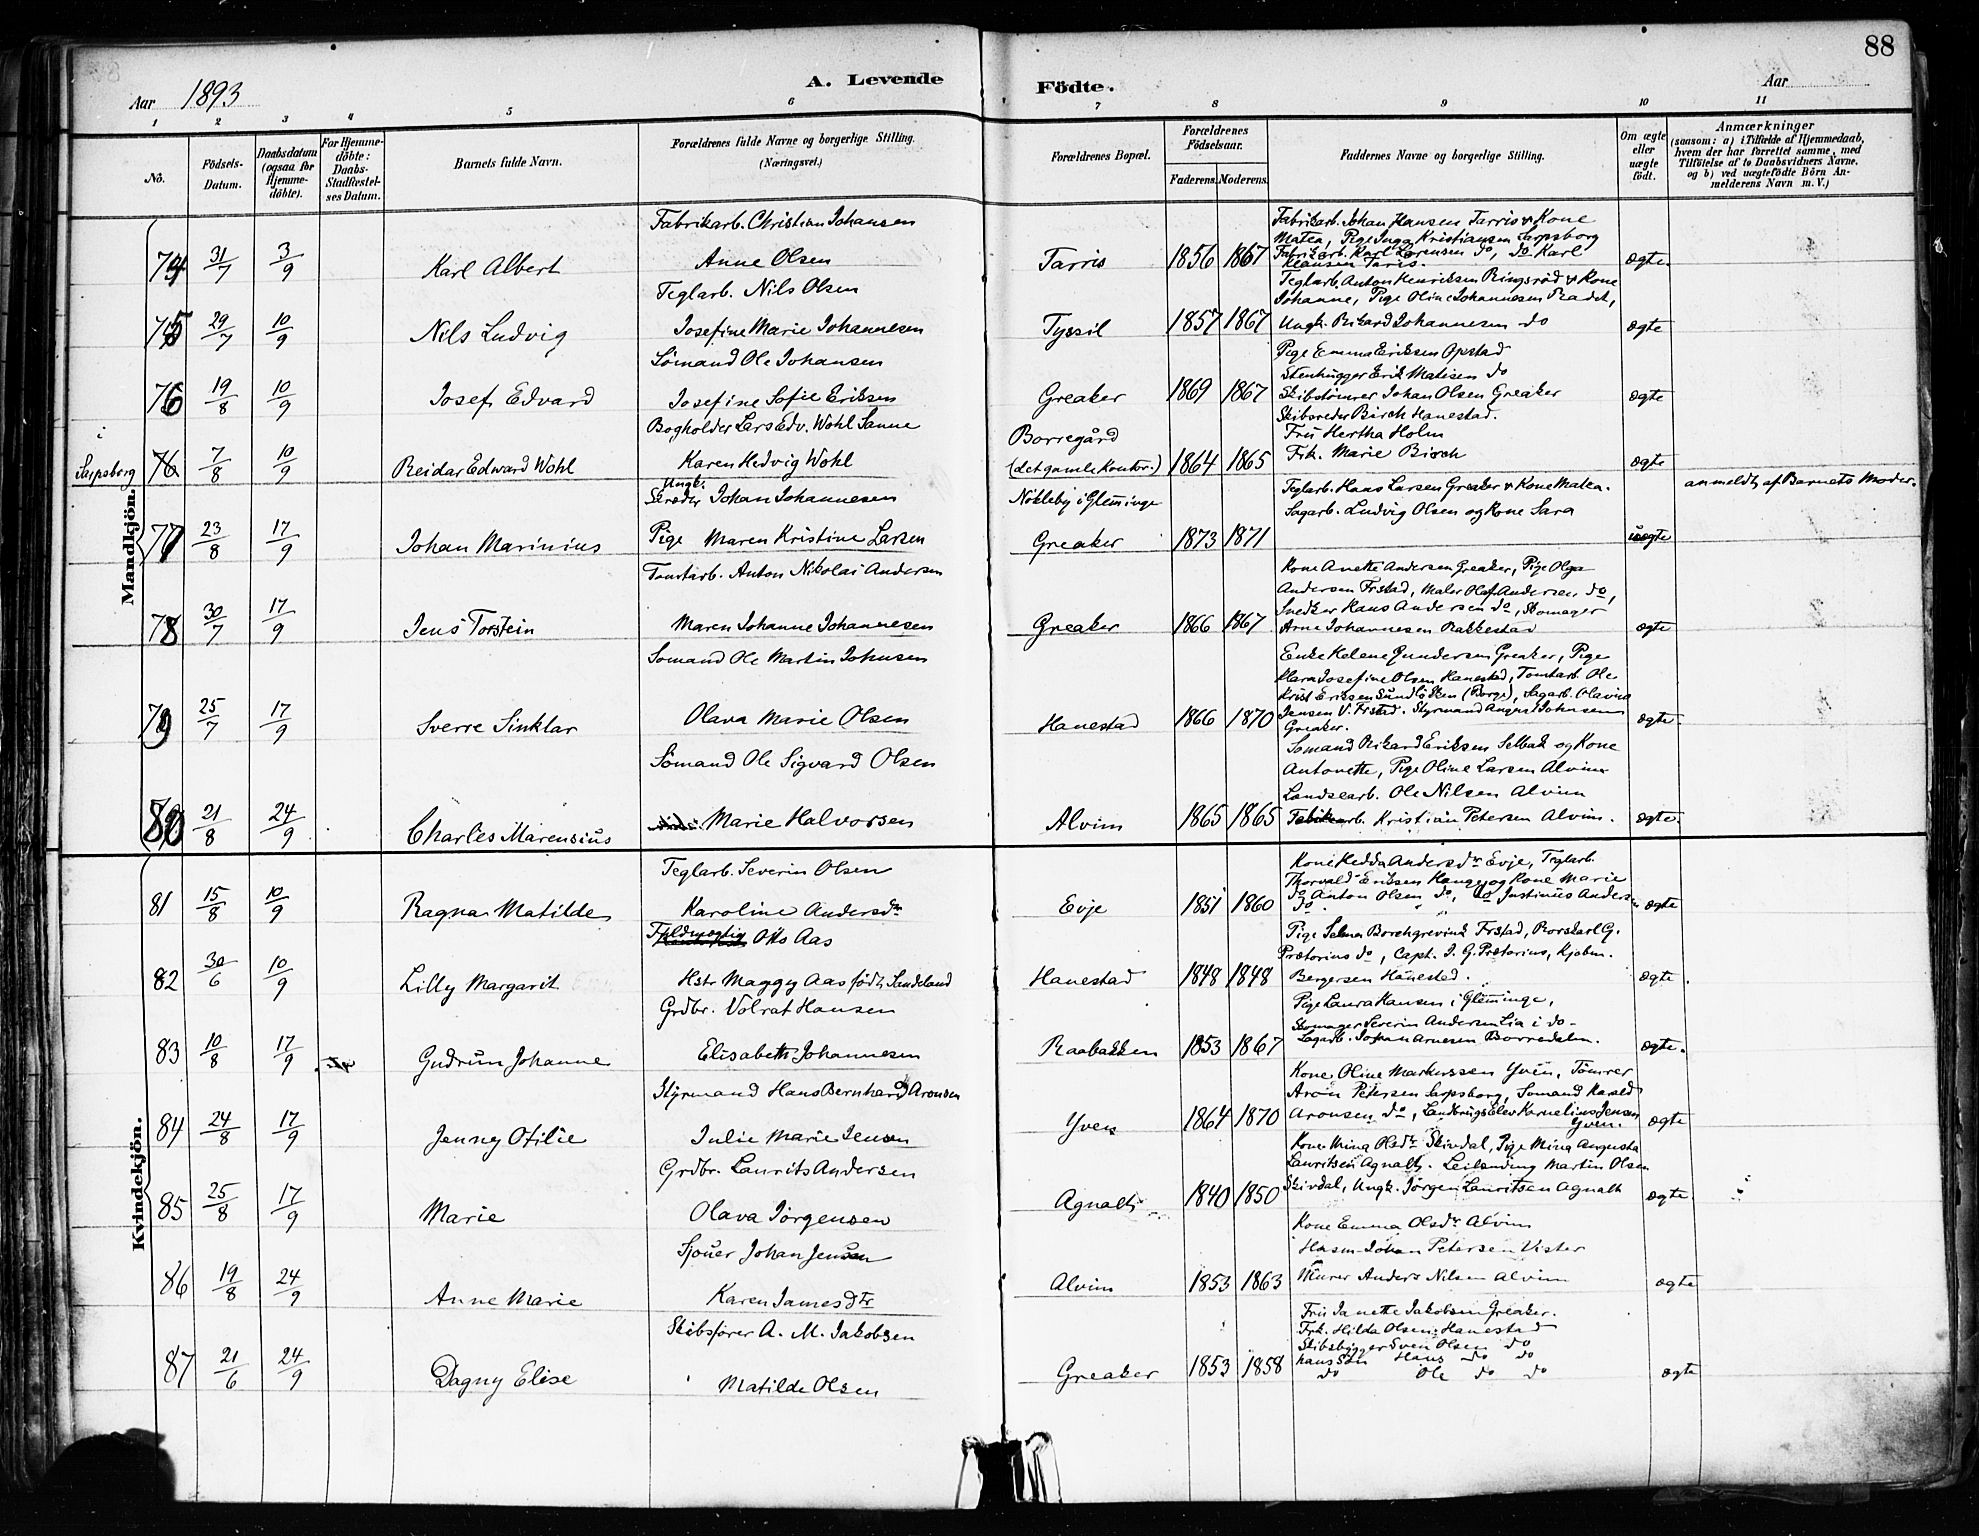 88
Aar 1893
A. Levende
Födte.
Aar
1 2 3 4 5 6 7 8 9 10 11
No.
Födsels-Datum.
Daabsdatum (ogsaa för Hjemme-döbte).
For Hjemme-döbte: Daabs-Stadfæstel-ses Datum.
Barnets fulde Navn.
Forældrenes fulde Navne og borgerlige Stilling.
(Næringsvei.)
Forældrenes Bopæl.
Forældrenes Födselsaar.
Faderens. Moderens.
Faddernes Navne og borgerlige Stilling.
Om ægte eller uægte födt.
Anmærkninger
(saasom: a) i Tilfælde af Hjemmedaab, hvem der har forrettet samme, med Tilföielse af to Daabsvidners Navne, og b) ved uægtefödte Börn An-melderens Navn m. V.)
Mandkjön.
74 31/7 3/9 Karl Albert
Fabrikarb. Christian Johansen
Anne Olsen
Tarris 1856 1867
Fabrikarb. Johan Hansen Tarris & Kone
Matea, Pige Inga Kristiansen Sarpsborg
Fabrikarb. Karl Lorensen do, do Karl
Klausen Tarris.
ægte.
75 29/7 10/9 Nils Ludvig
Teglarb. Nils Olsen
Josefine Marie Johannesen
Tyssil 1857 1867
Teglarb. Anton Henriksen Ringsrød & Kone
Johanne, Pige Oline Johannesen Radet,
Ungk. Rikard Johannesen do
ægte
76 19/8 10/9 Josef Edvard
Sømand Ole Johansen
Josefine Sofie Eriksen
Greaker 1869 1867
Pige Emma Eriksen Opstad
Stenhugger Erik Matisen do
Skibstömrer Johan Olsen Greaker
ægte
i Sarpsborg 76 7/8 10/9 Reidar Edward Wohl
Bogholder Lars Edv. Wohl Sanne
Karen Hedvig Wohl
Borregård
(det gamle Kontor.) 1864 1865
Skibsreder Birch Hanestad.
Fru Hertha Holm
Frk. Marie Birch
ægte
77 23/8 17/9 Johan Marinius
Ungk.
Skræder Johan Johannesen
Pige Maren Kristine Larsen
Nökleby i Glemminge
Greaker 1873 1871
Teglarb. Hans Larsen Greaker & Kone Matea.
Sagarb. Ludvig Olsen og Kone Sara
uægte
anmeldt af Barnets Moder.
78 30/7 17/9 Jens Torstein
Tomtarb. Anton Nikolai Andersen
Maren Johanne Johannesen
Greaker 1866 1867
Kone Anette Andersen Greaker, Pige Olga
Andersen Frstad, Maler Olaf Andersen do,
Snedker Hans Andersen do, Skomager
Arne Johannesen Rakkestad
ægte
79 25/7 17/9 Sverre Sinklar
Sømand Ole Martin Johnsen
Olava Marie Olsen
Hanestad 1866 1870
Enke Helene Gundersen Greaker, Pige
Klara Josefine Olsen Hanestad, Tomtarb. Ole
Krist Eriksen Sundlökken (Borge), Sagarb. Olavina
Jensen V. Frstad. Styrmand August Johnsen
Greaker.
ægte
80 21/8 24/9 Charles Marensius
Sömand Ole Sigvard Olsen
Marie Halvorsen
Alvim 1865 1865
Sømand Rikard Eriksen Selbak og Kone
Antonette, Pige Oline Larsen Alvim
Landsearb. Ole Nilsen Alvim
Fabrikarb. Kristian Petersen Alvim.
ægte.
Kvindekjön.
81 15/8 10/9 Ragna Matilde
Teglarb. Severin Olsen
Karoline Andersdtr
Evje 1851 1860
Kone Hedda Andersdtr Evje, Teglarb.
Thorvald Eriksen Hauge og Kone Marie
do Anton Olsen do, do Justinus Andersen
do.
ægte
82 30/6 10/9 Lilly Margarit
Fuldmægtig Otto Aas
Hstr Maggy Aas födt Sandeland
Hanestad 1848 1848
Pige Selma Borchgrevink Frstad, Rorskarl G.
Prætorius do, Capt. J. G. Prætorius, Kjøbm.
Bergersen Hanestad.
ægte.
83 10/8 17/9 Gudrun Johanne
Grdbr. Volrat Hansen
Elisabeth Johannesen
Raabakken 1853 1867
Pige Laura Hansen i Glemminge,
Skomager Severin Andersen Lia i do
Sagarb. Johan Arnesen Borredalen.
ægte.
84 24/8 17/9 Jenny Otilie
Styrmand Hans Bernhard Aronsen
Julie Marie Jensen
Yven 1864 1870
Kone Oline Markussen Yven, Tömrer
Aron Petersen Sarpsborg, Sømand Harald
Aronsen do, Landbrugselev Kornelius Jensen
Yven.
ægte
85 25/8 17/9 Marie
Grdbr. Laurits Andersen
Olava Jörgensen
Agnalt 1840 1850
Kone Mina Olsdtr Skivdal, Pige Mina Augusta
Lauritsen Agnalt. Leilænding Martin Olsen
Skivdal, Ungk. Jörgen Lauritsen Agnalt
ægte
86 19/8 24/9 Anne Marie
Sjouer Johan Jensen
Karen Jamesdtr
Alvim 1853 1863
Kone Emma Olsdtr Alvim
Husm. Johan Petersen Vister
Murer Anders Nilsen Alvim
ægte
87 21/6 24/9 Dagny Elise
Skibsfører A. M. Jakobsen
Matilde Olsen
Greaker 1853 1858
Fru Janette Jakobsen Greaker.
Frk. Hilda Olsen Hanestad
Skibsbygger Sven Olsen do
hans Sön Hans do do
do Ole do do
ægte